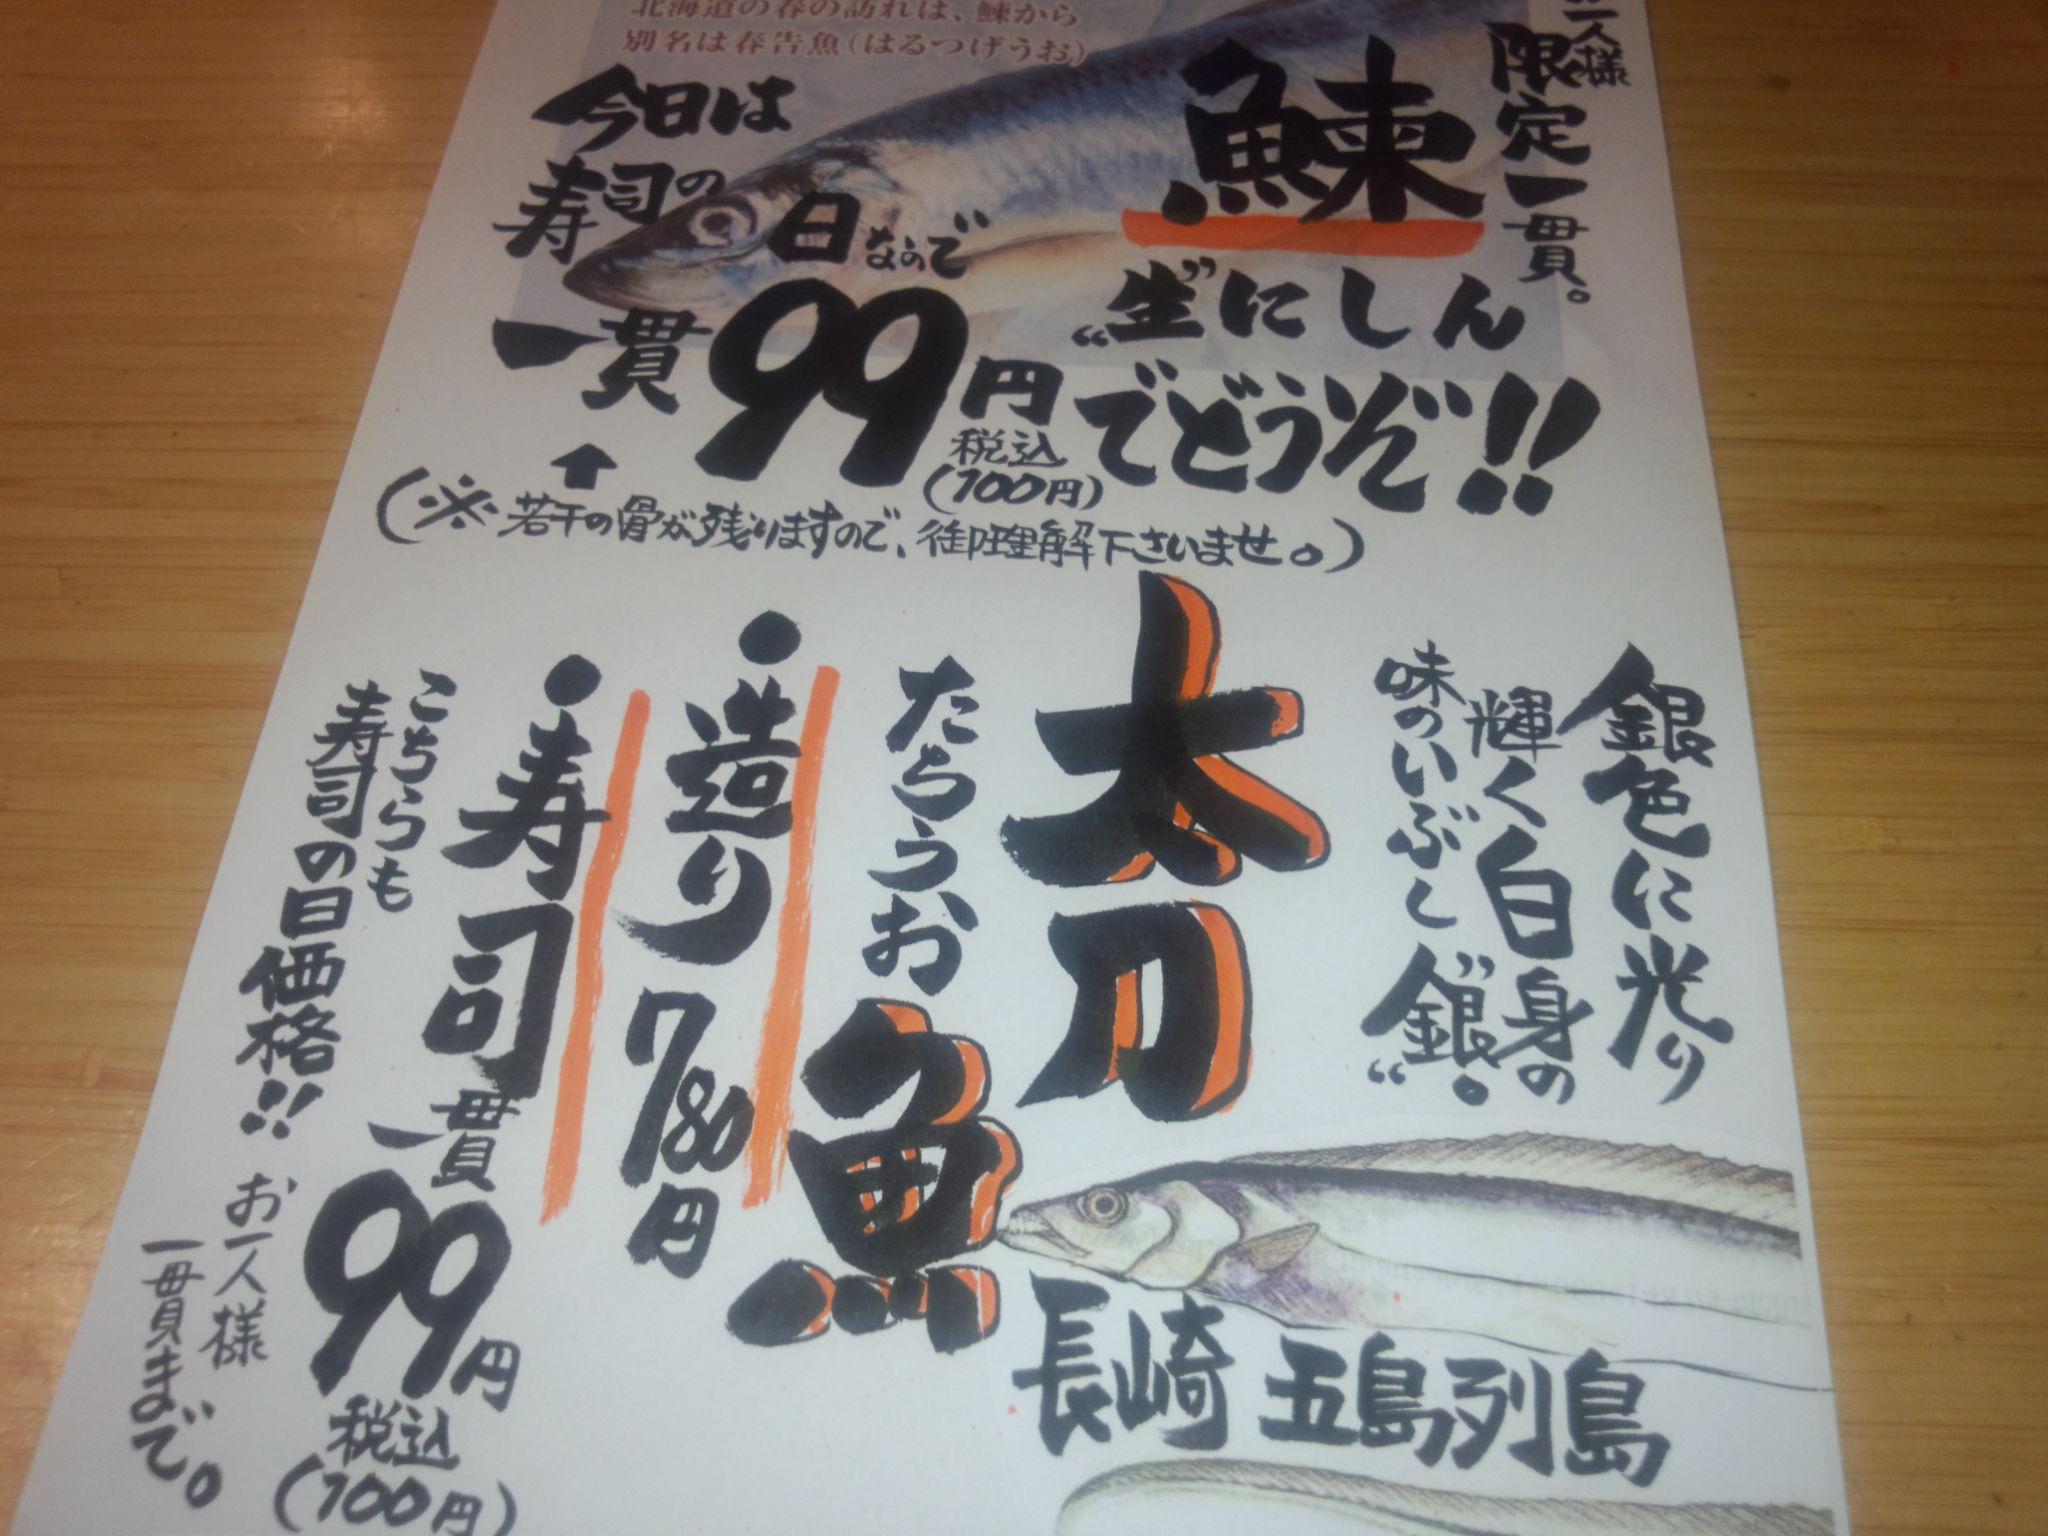 北海道の春の訪れは、鰊から
別名は春告魚(はるつげうお)
一人様
限定一貫。
鰊
"生"にしん
でどうぞ!!
今日は
寿司の
日なので
一貫99円
税込
(100円)
(※若干の骨が残りますので、御理解下さいませ。)
銀色に光り
輝く白身の
味のいぶし"銀"。
太刀
魚
たちうお
・造り780円
・寿司一貫99円
税込
(100円)
こちらも
寿司の日価格!!
お一人様
一貫まで。
長崎 五島列島